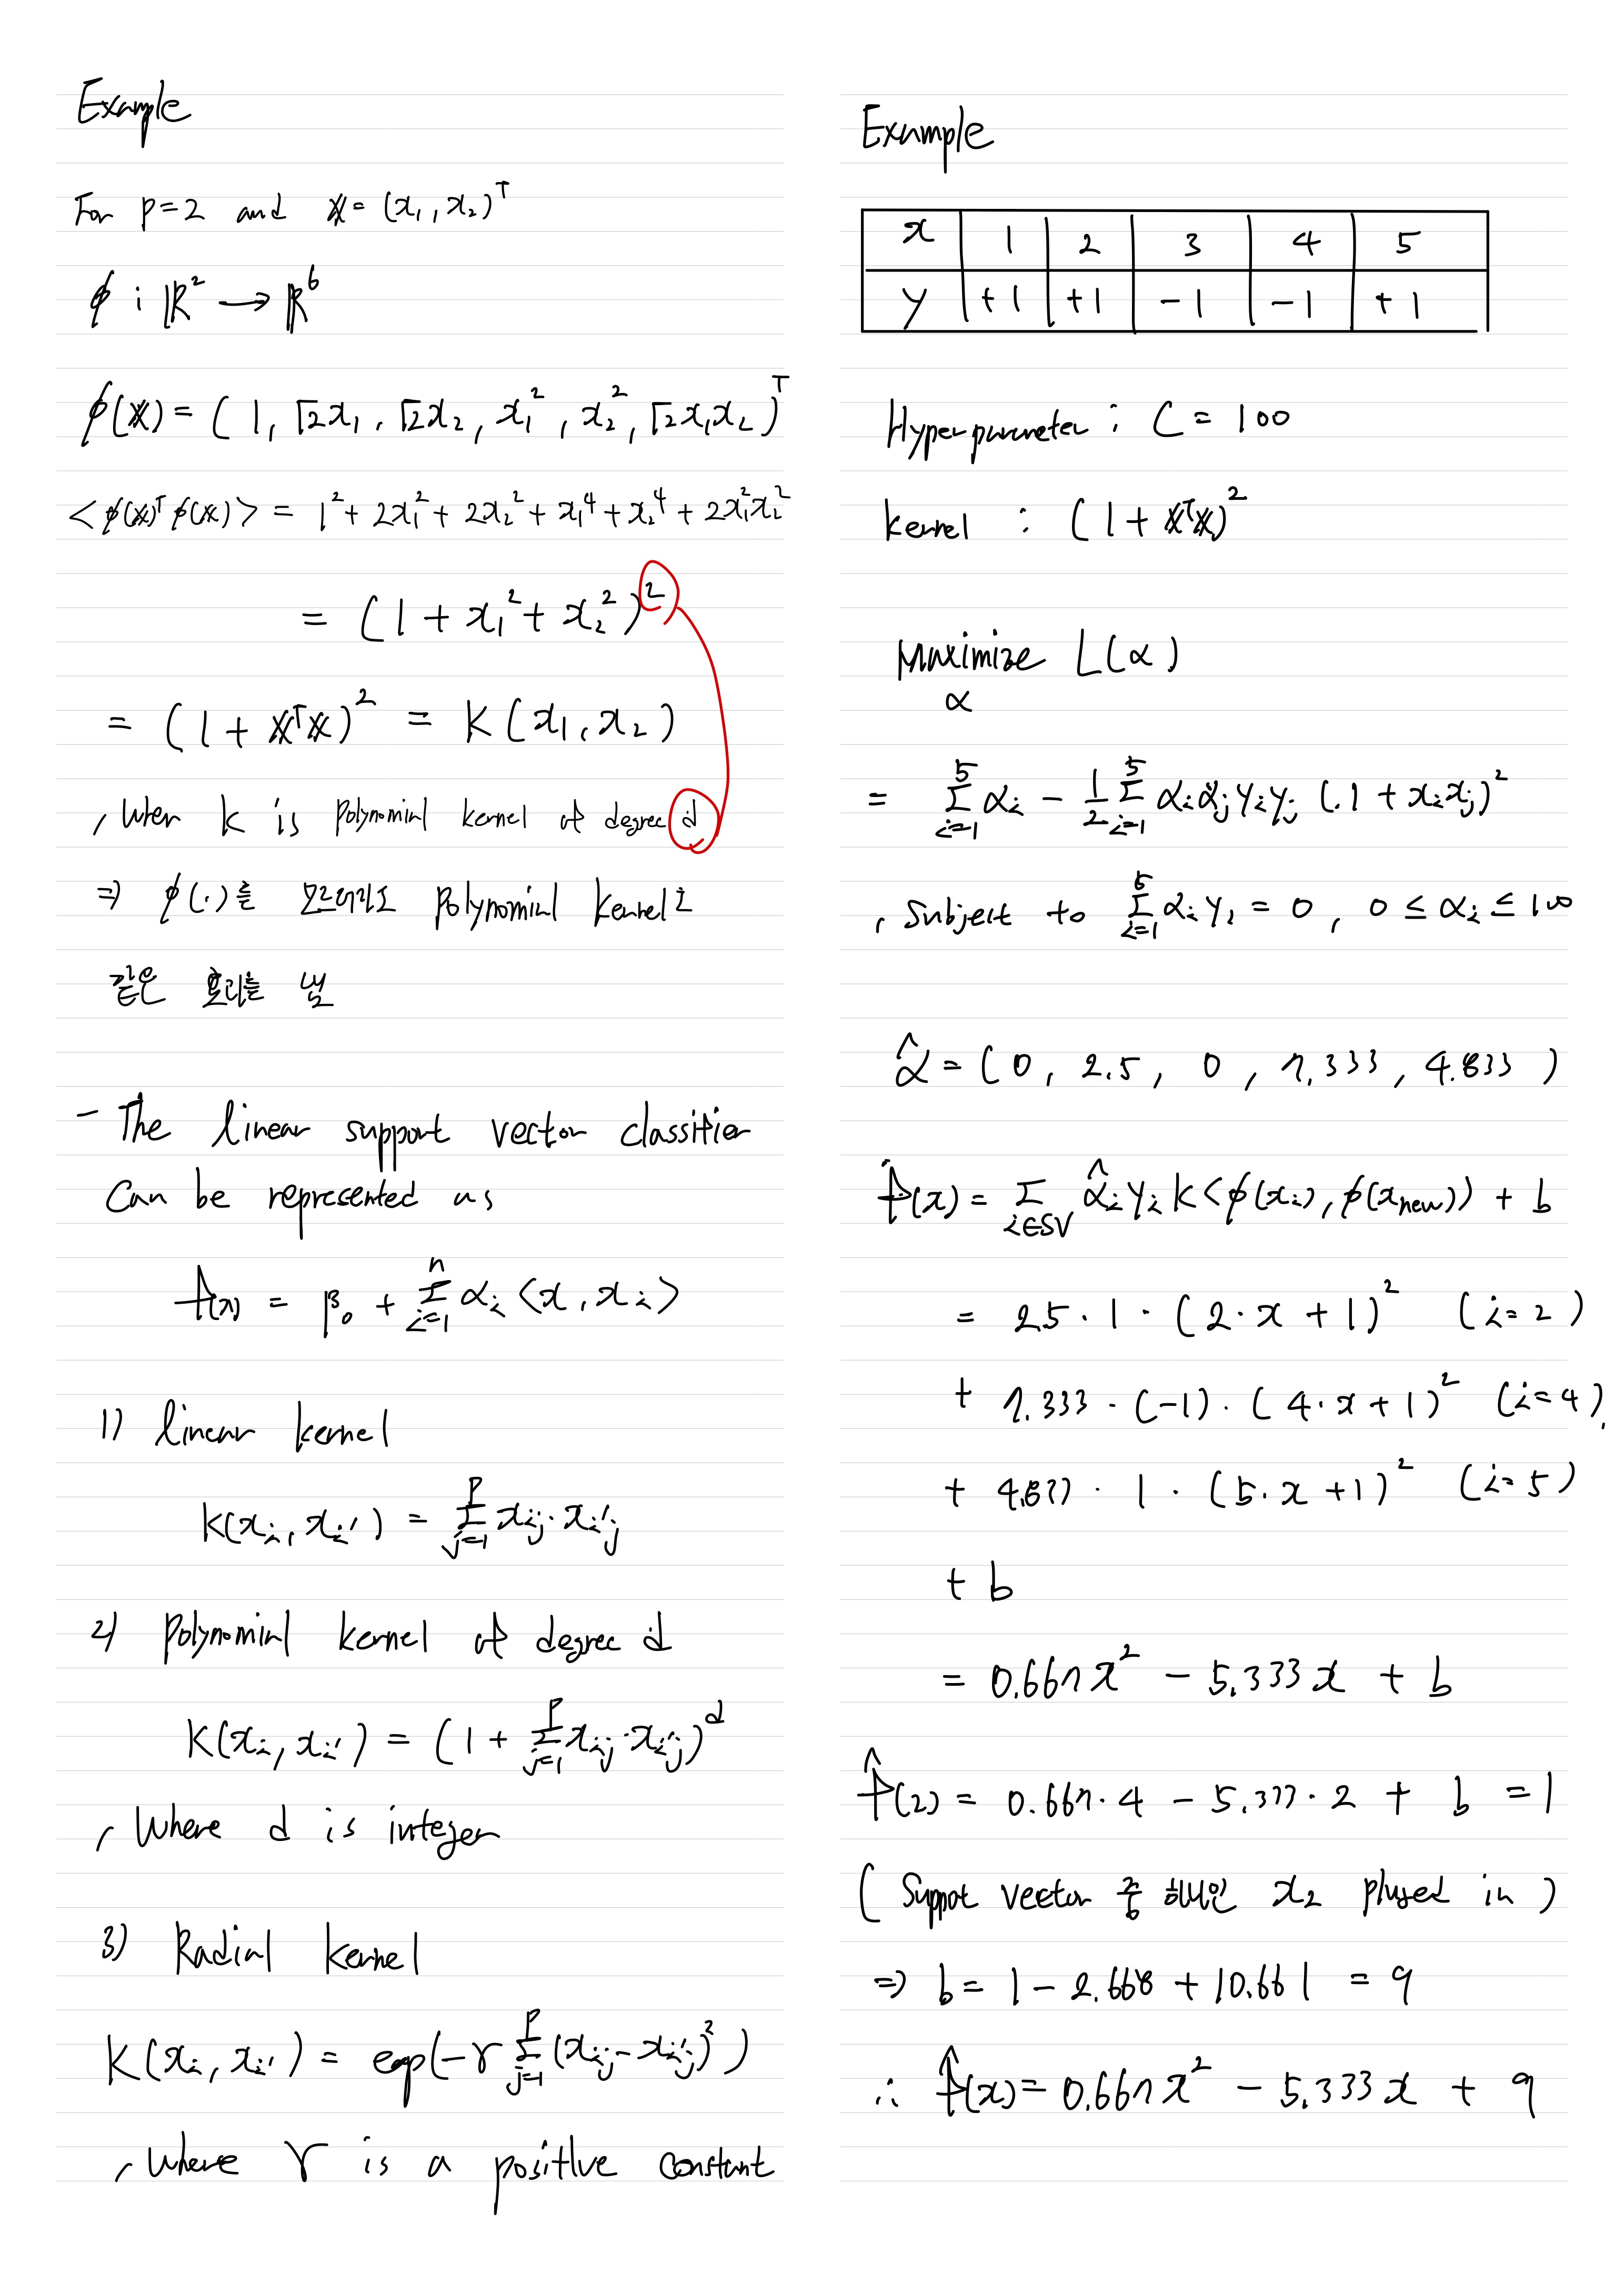 Example
For p=2 and 𝕏 = (x₁, x₂)ᵀ
ϕ : ℝ² → ℝ⁶
ϕ(𝕏) = (1, √2x₁, √2x₂, x₁², x₂², √2x₁x₂)ᵀ
<ϕ(𝕏)ᵀϕ(𝕏)> = 1² + 2x₁² + 2x₂² + x₁⁴ + x₂⁴ + 2x₁²x₂²
= (1 + x₁² + x₂²)²
= (1 + 𝕏ᵀ𝕏)² = K(x₁, x₂)
, when k is polynomial kernel of degree d
⇒ ϕ(·)를 모르더라도 polynomial kernel로
같은 효과를 냄
- The linear support vector classifier
can be represented as
f(x) = β₀ + Σᵢ₌₁ⁿ αᵢ <x, xᵢ>
1) linear kernel
K(xᵢ, xᵢ′) = Σⱼ₌₁ᵖ xᵢⱼ · xᵢ′ⱼ
2) polynomial kernel of degree d
K(xᵢ, xᵢ′) = (1 + Σⱼ₌₁ᵖ xᵢⱼ · xᵢ′ⱼ)ᵈ
, where d is integer
3) Radial kernel
K(xᵢ, xᵢ′) = exp(-γ Σⱼ₌₁ᵖ (xᵢⱼ - xᵢ′ⱼ)²)
, where γ is a positive constant
Example
x 1 2 3 4 5
y +1 +1 -1 -1 +1
Hyperparameter : C = 100
kernel : (1 + 𝕏ᵀ𝕏)²
Maximize L(α)
α
= Σᵢ₌₁⁵ αᵢ - 1/2 Σᵢ₌₁⁵ αᵢαⱼyᵢyⱼ (1 + xᵢxⱼ)²
, subject to Σᵢ₌₁⁵ αᵢyᵢ = 0, 0 ≤ αᵢ ≤ 100
α̂ = (0, 2.5, 0, 7.333, 4.833)
f̂(x) = Σ_{i∈SV} α̂ᵢ yᵢ K<ϕ(xᵢ), ϕ(x_new)) + b
= 2.5 · 1 · (2·x + 1)² (i=2)
+ 7.333 · (-1) · (4·x + 1)² (i=4)
+ 4.833 · 1 · (5·x + 1)² (i=5)
+ b
= 0.667x² - 5.333x + b
f̂(2) = 0.667·4 - 5.333·2 + b = 1
(Suppot vector 중 하나인 x₂ plused in)
⇒ b = 1 - 2.668 + 10.661 = 9
∴ f̂(x) = 0.667x² - 5.333x + 9